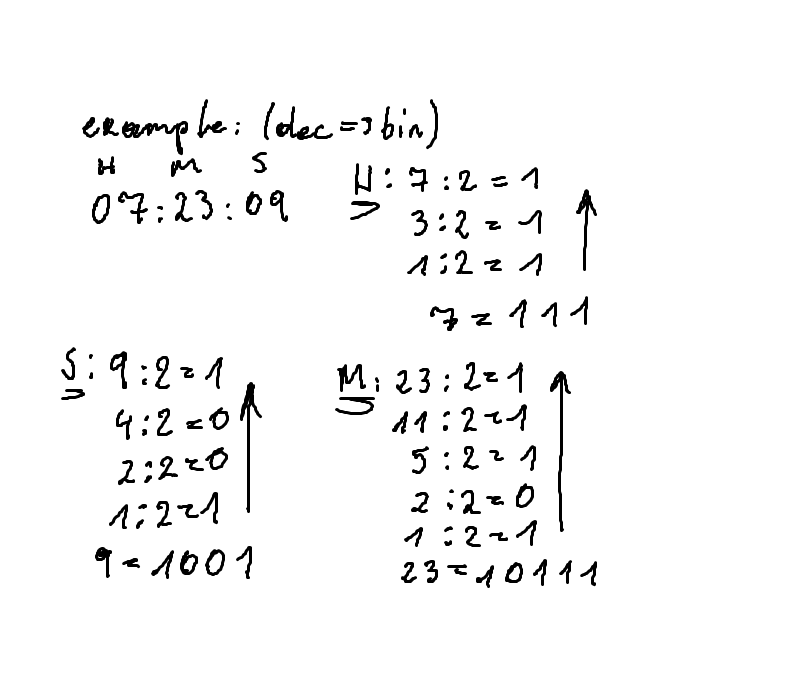 example: (dec => bin)
H M S
07:23:09
H: 7:2 = 1
3:2 = 1
1:2 = 1
7 = 111
S: 9:2 = 1
4:2 = 0
2:2 = 0
1:2 = 1
9 = 1001
M: 23:2 = 1
11:2 = 1
5:2 = 1
2:2 = 0
1:2 = 1
23 = 10111